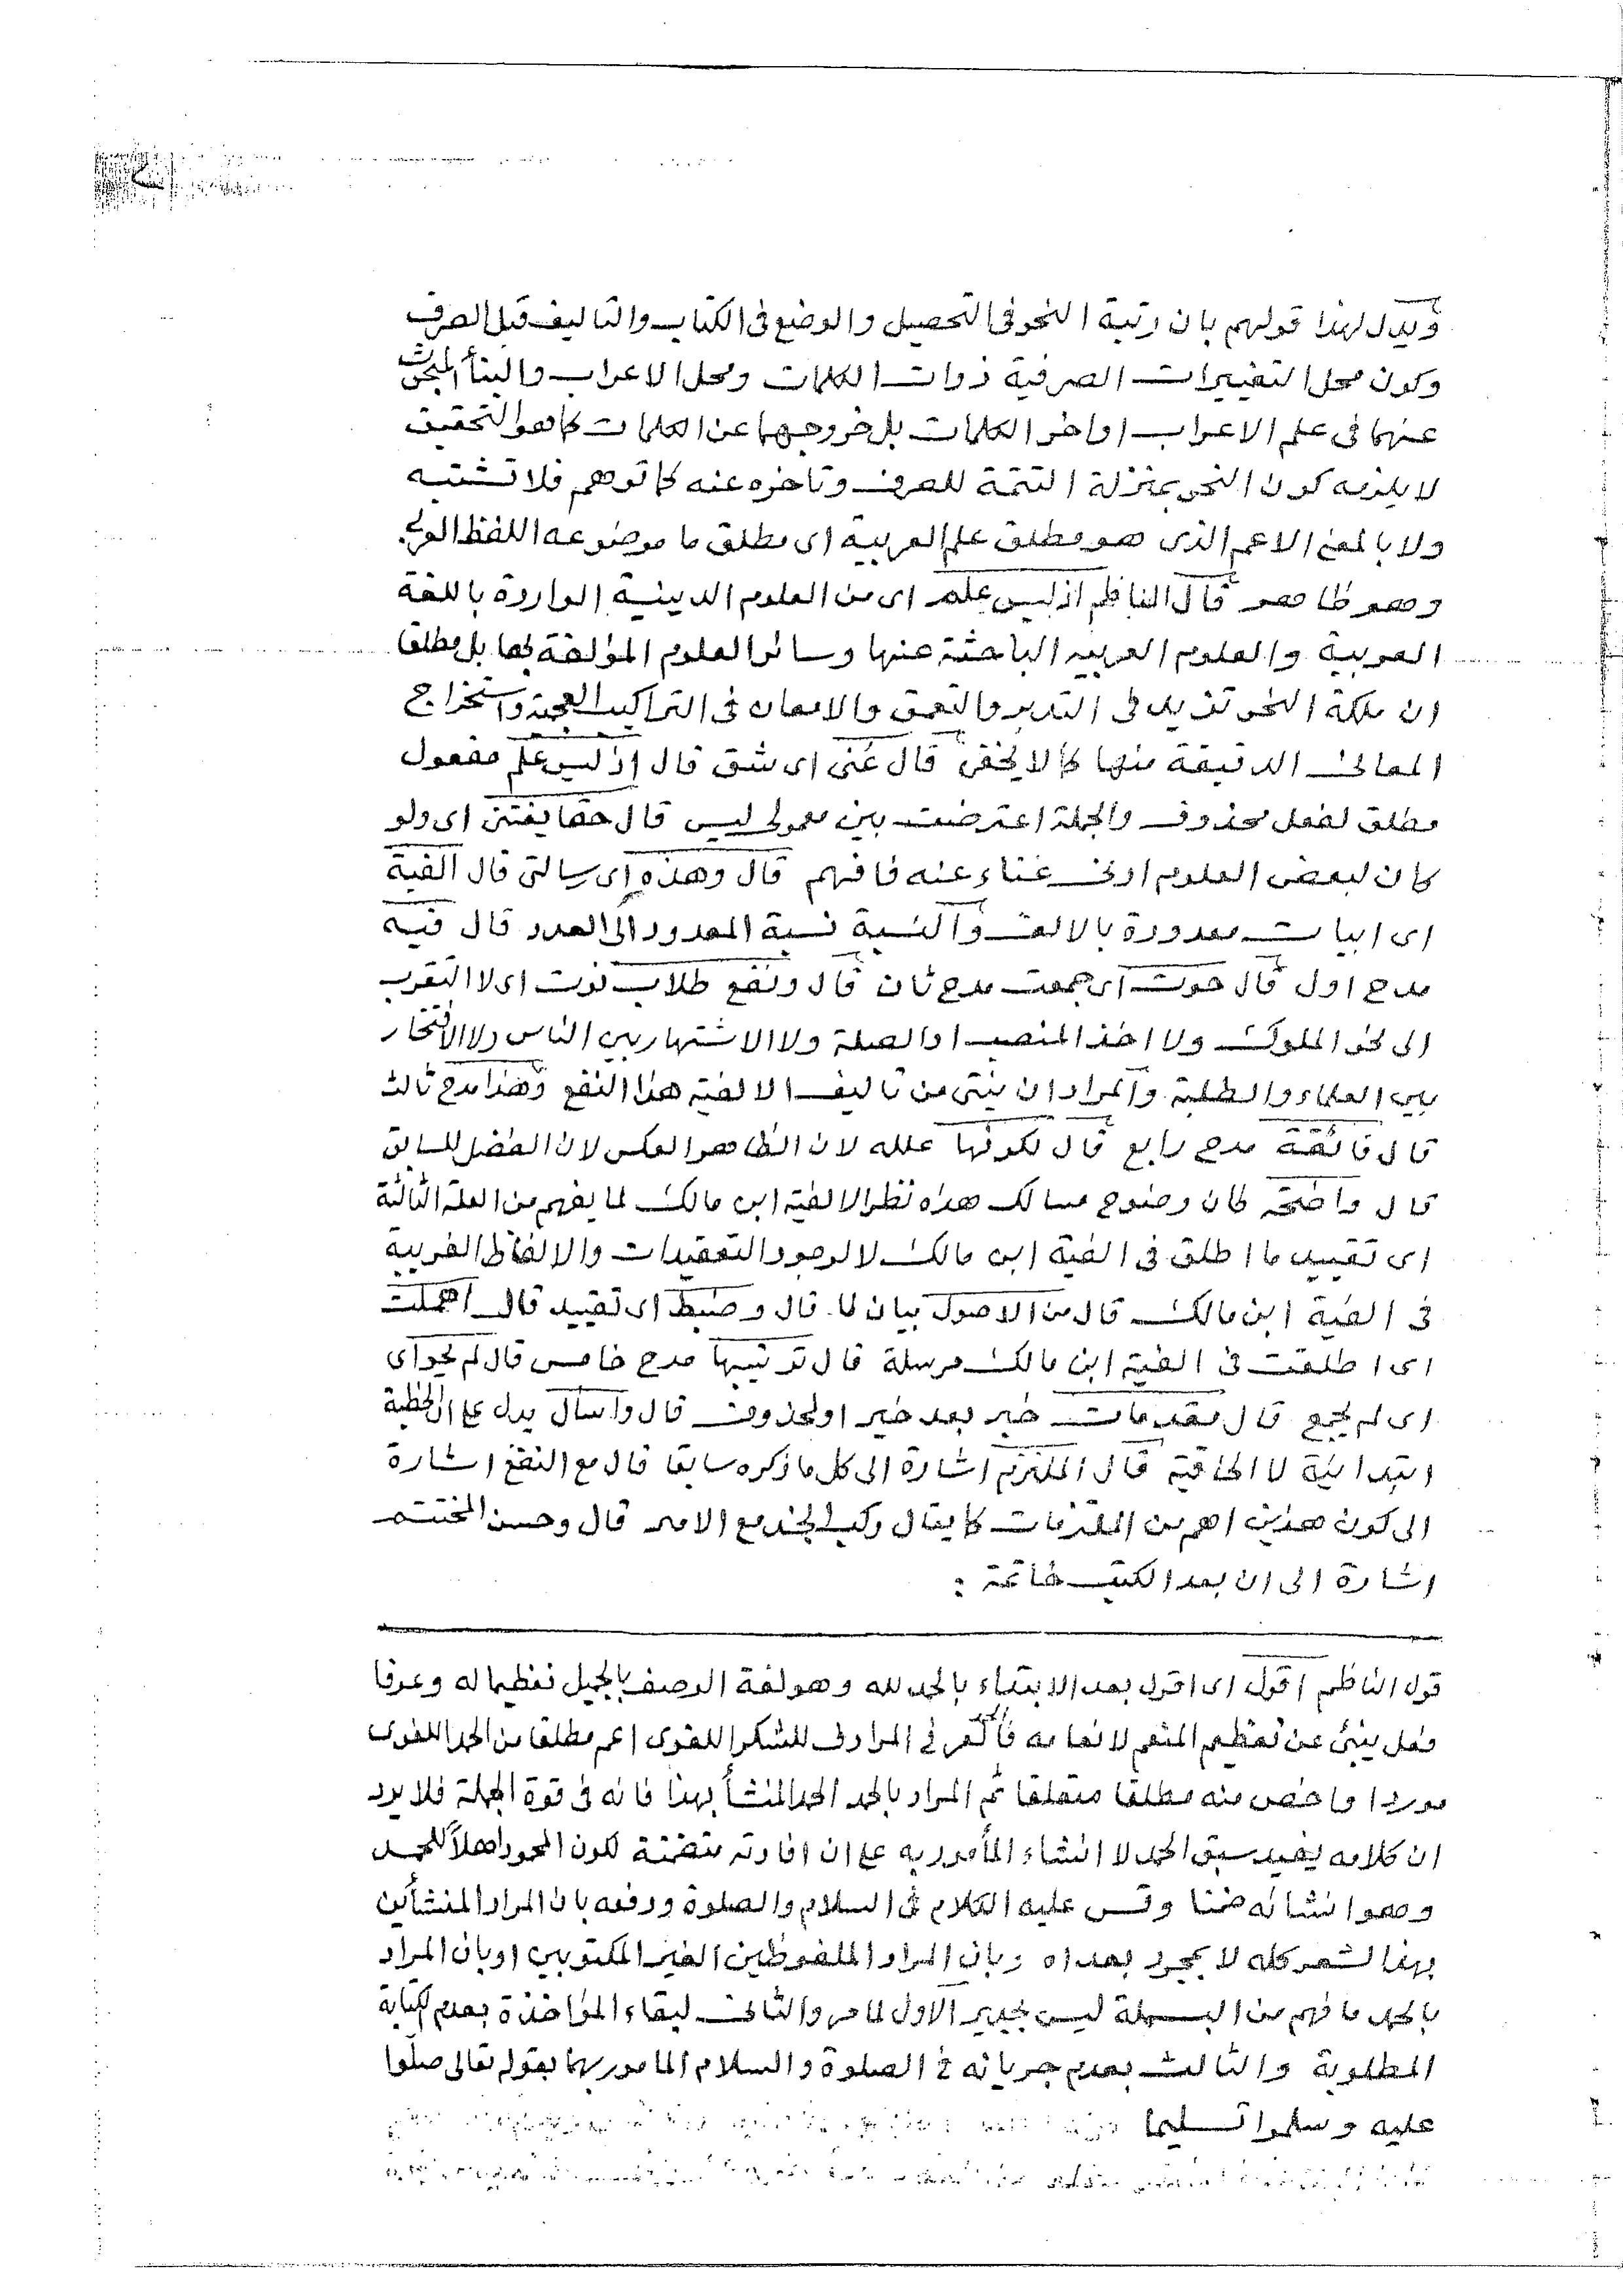 ويدل لهذا قولهم بان رتبة النحو فى التحصيل والوضع فى الكتاب والتاليف قبل الصرف
وكون محل التغييرات الصرفية ذوات الكلمات ومحل الاعراب والبنأ المبحوث
عنهما فى علم الاعراب اواخر الكلمات بل خروجهما عن الكلمات كما هو التحقيق
لا يلزمه كون النحو بمنزلة التتمة للصرف وتاخره عنه كما توهم فلا تشتبه
ولا بالمعنى الاعم الذى هو مطلق علم العربية اى مطلق ما موضوعه اللفظ العربى
وهو ظاهر قال الناظم اذ ليس علم اى من العلوم الدينية الواردة باللغة
العربية والعلوم العربيه الباحثة عنها وسائر العلوم المؤلفة بها بل مطلقا
ان ملكة النحو تزيد فى التدبر والتعمق والامعان فى التراكيب واستخراج
المعانى الدقيقة منها كما لا يخفى قال عنى اى شق قال اذ ليس علم مفعول
مطلق لفعل محذوف والجملة اعترضت بين معمولى ليس قال حقا يفتنى اى ولو
كان لبعض العلوم ادنى غناء عنه فافهم قال وهذه اى رسالتى قال الفية
اى ابيات معدودة بالالف والنسبة نسبة المعدود الى العدد قال فيه
مدح اول قال حوت اى جمعت مدح ثان قال ونفع طلاب نوت اى لا التقرب
الى نحو الملوك ولا اخذ المنصب او الصلة ولا الاشتهار بين الناس ولا الافتخار
بين العلماء والطلبة والمراد ان نيتى من تاليف الالفية هذا النفع وهذا مدح ثالث
قال فائقة مدح رابع قال لكونها علله لان الظاهر العكس لان الفضل للسابق
قال واضحة كان وضوح مسالك هذاه نظر الالفية ابن مالك لما يفهم من العلة الثالثة
اى تقييد ما اطلق فى الفية ابن مالك لا لوجود التعقيدات والالفاظ الغريبة
فى الفية ابن مالك قال من الاصول بيان لما قال وضبط اى تقييد قال اهملت
اى اطلقت فى الفية ابن مالك مرسلة قال ترتيبها مدح خامس قال لم يحو اى
اى لم يجمع قال مقدمات خبر بعد خبر او لمحذوف قال واسأل يدل على ان الخطبة
ابتدائية لا الحاقية قال الملتزم اشارة الى كل ما ذكره سابقا قال مع النفع اشارة
الى كون هذين اهم من الملتزمات كما يقال ركب الجند مع الامير قال وحسن المختتم
اشارة الى ان بعد الكتب خاتمة :
قول الناظم اقول اى اقول بعد الابتداء بالحمد لله وهو لغة الوصف بالجميل تعظيما له وعرفا
فعل ينبئ عن تعظيم المنعم لانعامه فالحمد العرفى المرادف للشكر اللغوى اعم مطلقا من الحمد اللغوى
موردا واخص منه مطلقا متعلقا ثم المراد بالحمد الحمد المنشأ بهذا فانه فى قوة الجملة فلا يرد
ان كلامه يفيد سبق الحمد لا انشاء المأمور به على ان افادته متضمنة لكون المحمود اهلاً للحمد
وهو انشائه ضمنا وقس عليه الكلام فى السلام والصلوة ودفعه بان المراد المنشأين
بهذا الشعر كله لا بمجرد بعداه وبان المراد الملفوظين الغير المكتوبين او بان المراد
بالحمد ما فهم من البسملة ليس بجدير الاول لما مر والثانى لبقاء المؤاخذة بعدم كتابة
المطلوبة والثالث بعدم جريانه فى الصلوة والسلام المامور بهما بقوله تعالى صلّوا
عليه وسلموا تسليما